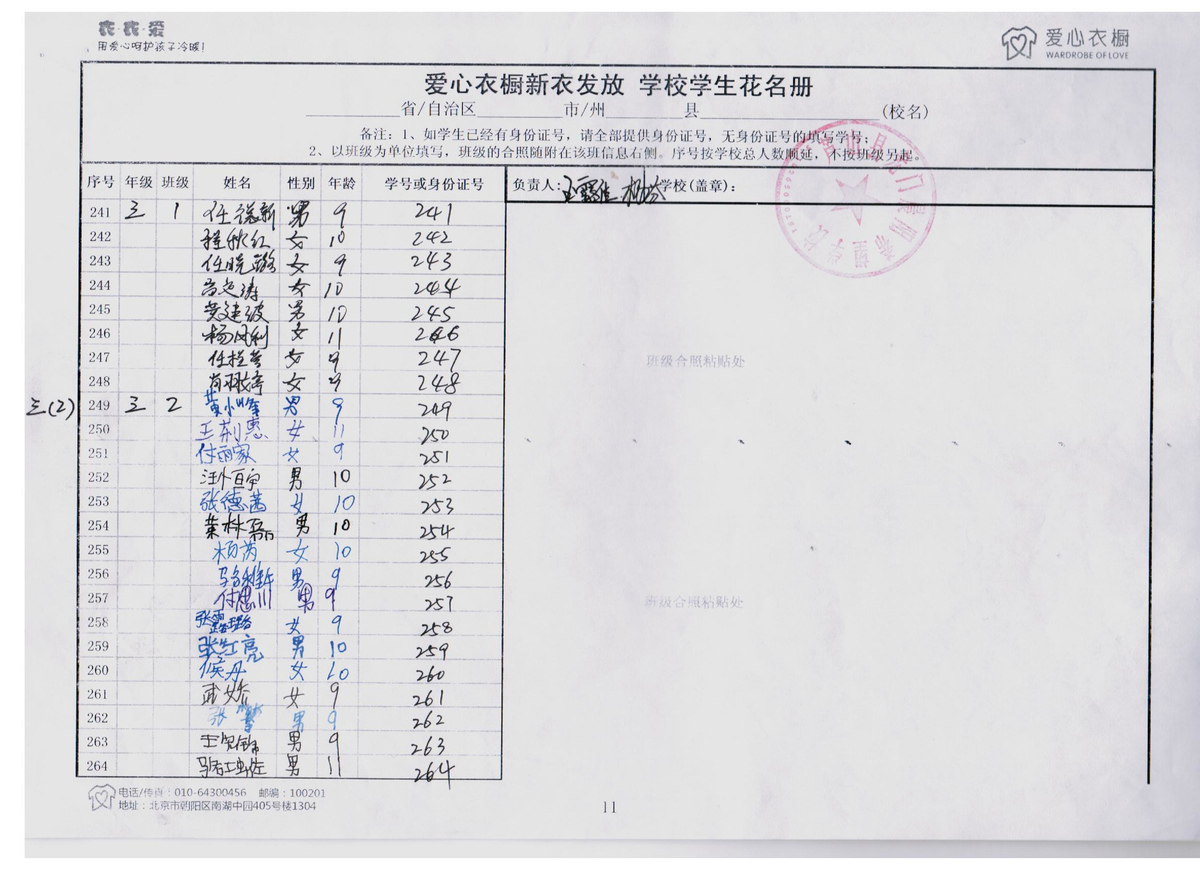 衣·衣·爱
用爱心呵护孩子冷暖!
爱心衣橱
WARDROBE OF LOVE
爱心衣橱新衣发放 学校学生花名册
省/自治区 市/州 县 (校名)
备注:1、如学生已经有身份证号,请全部提供身份证号,无身份证号的填写学号;
2、以班级为单位填写,班级的合照随附在该班信息右侧。序号按学校总人数顺延,不按班级另起。
序号 年级 班级 姓名 性别 年龄 学号或身份证号 负责人: 学校(盖章):
241 三 1 任 新 男 9 241
242 程秋红 女 10 242
243 任晓 女 9 243
244 女 10 244
245 建波 男 10 245
246 杨凤利 女 11 246
247 任 女 9 247
248 肖 婷 女 9 248
三(2) 249 三 2 黄小峰 男 9 249
250 王荆惠 女 11 250
251 付丽家 女 9 251
252 汪 男 10 252
253 张德茜 女 10 253
254 叶林 男 10 254
255 杨芮 女 10 255
256 马 男 9 256
257 付思川 男 9 257
258 张露璐 女 9 258
259 张红亮 男 10 259
260 侯丹 女 10 260
261 武娇 女 9 261
262 张 男 9 262
263 王贺 男 9 263
264 男 11 264
班级合照粘贴处
班级合照粘贴处
电话/传真:010-64300456 邮编:100201
地址:北京市朝阳区南湖中园405号楼1304
11